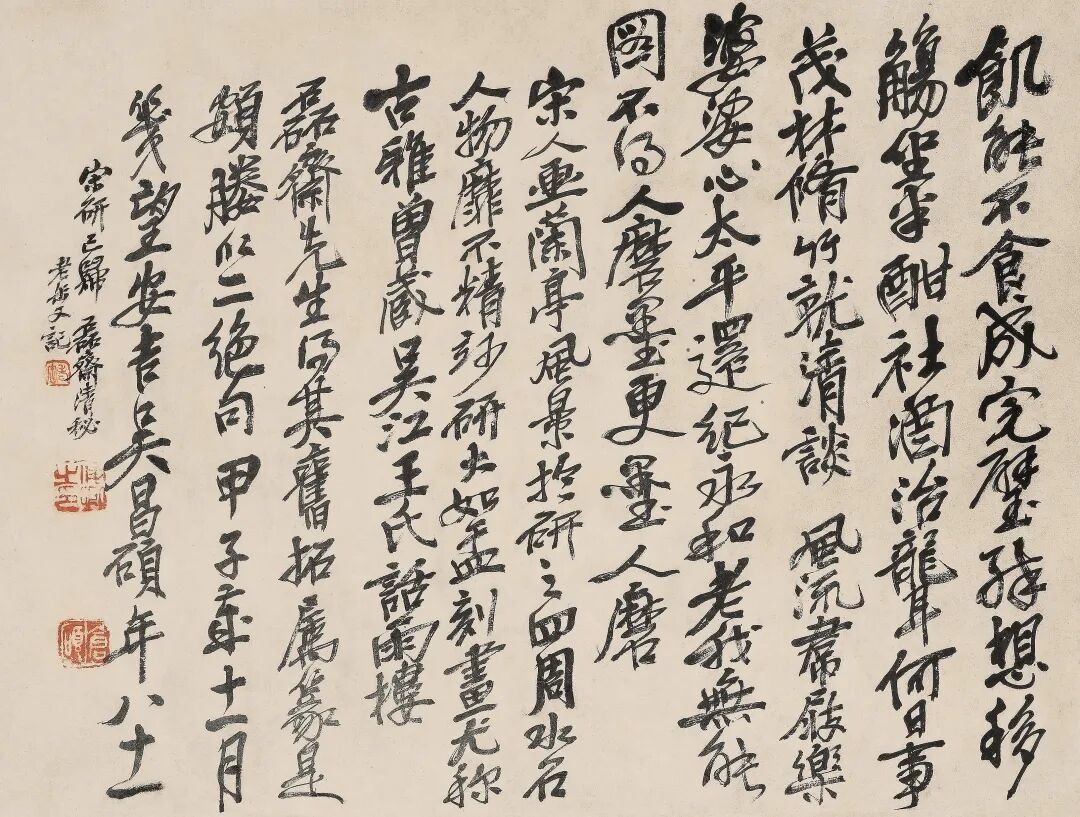 飢能不食成完璧殊想移
觴坐半酣社酒治聾何日事
茂林脩竹就清談 風流裙屐樂
婆娑心太平還紀永和老我無能
圖不得人磨墨更墨人磨
宋人画蘭亭風景於研之四周水石
人物靡不精妙研大如盂刻畫尤称
古雅曾藏吴江王氏話雨樓
磊齋先生得其舊拓属篆是
頟媵以二絶句甲子歲十一月
幾望安吉吴昌碩年八十一
宋研已歸 磊齋清秘
老缶又記
倉碩